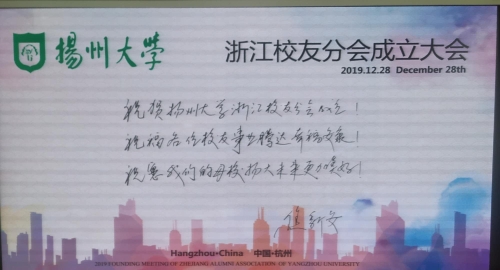 揚州大学
浙江校友分会成立大会
2019.12.28 December 28th
祝贺扬州大学浙江校友分会成立！
祝福各位校友事业腾达幸福安康！
祝愿我们的母校扬大未来更加美好！
Hangzhou•China 中国•杭州
2019 FOUNDING MEETING OF ZHEJIANG ALUMNI ASSOCIATION OF YANGZHOU UNIVERSITY